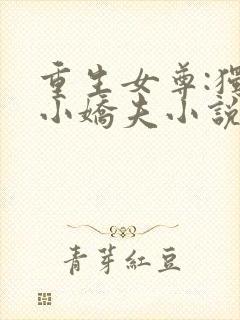 重生女尊:獨
小嬌夫小說
青芽紅豆